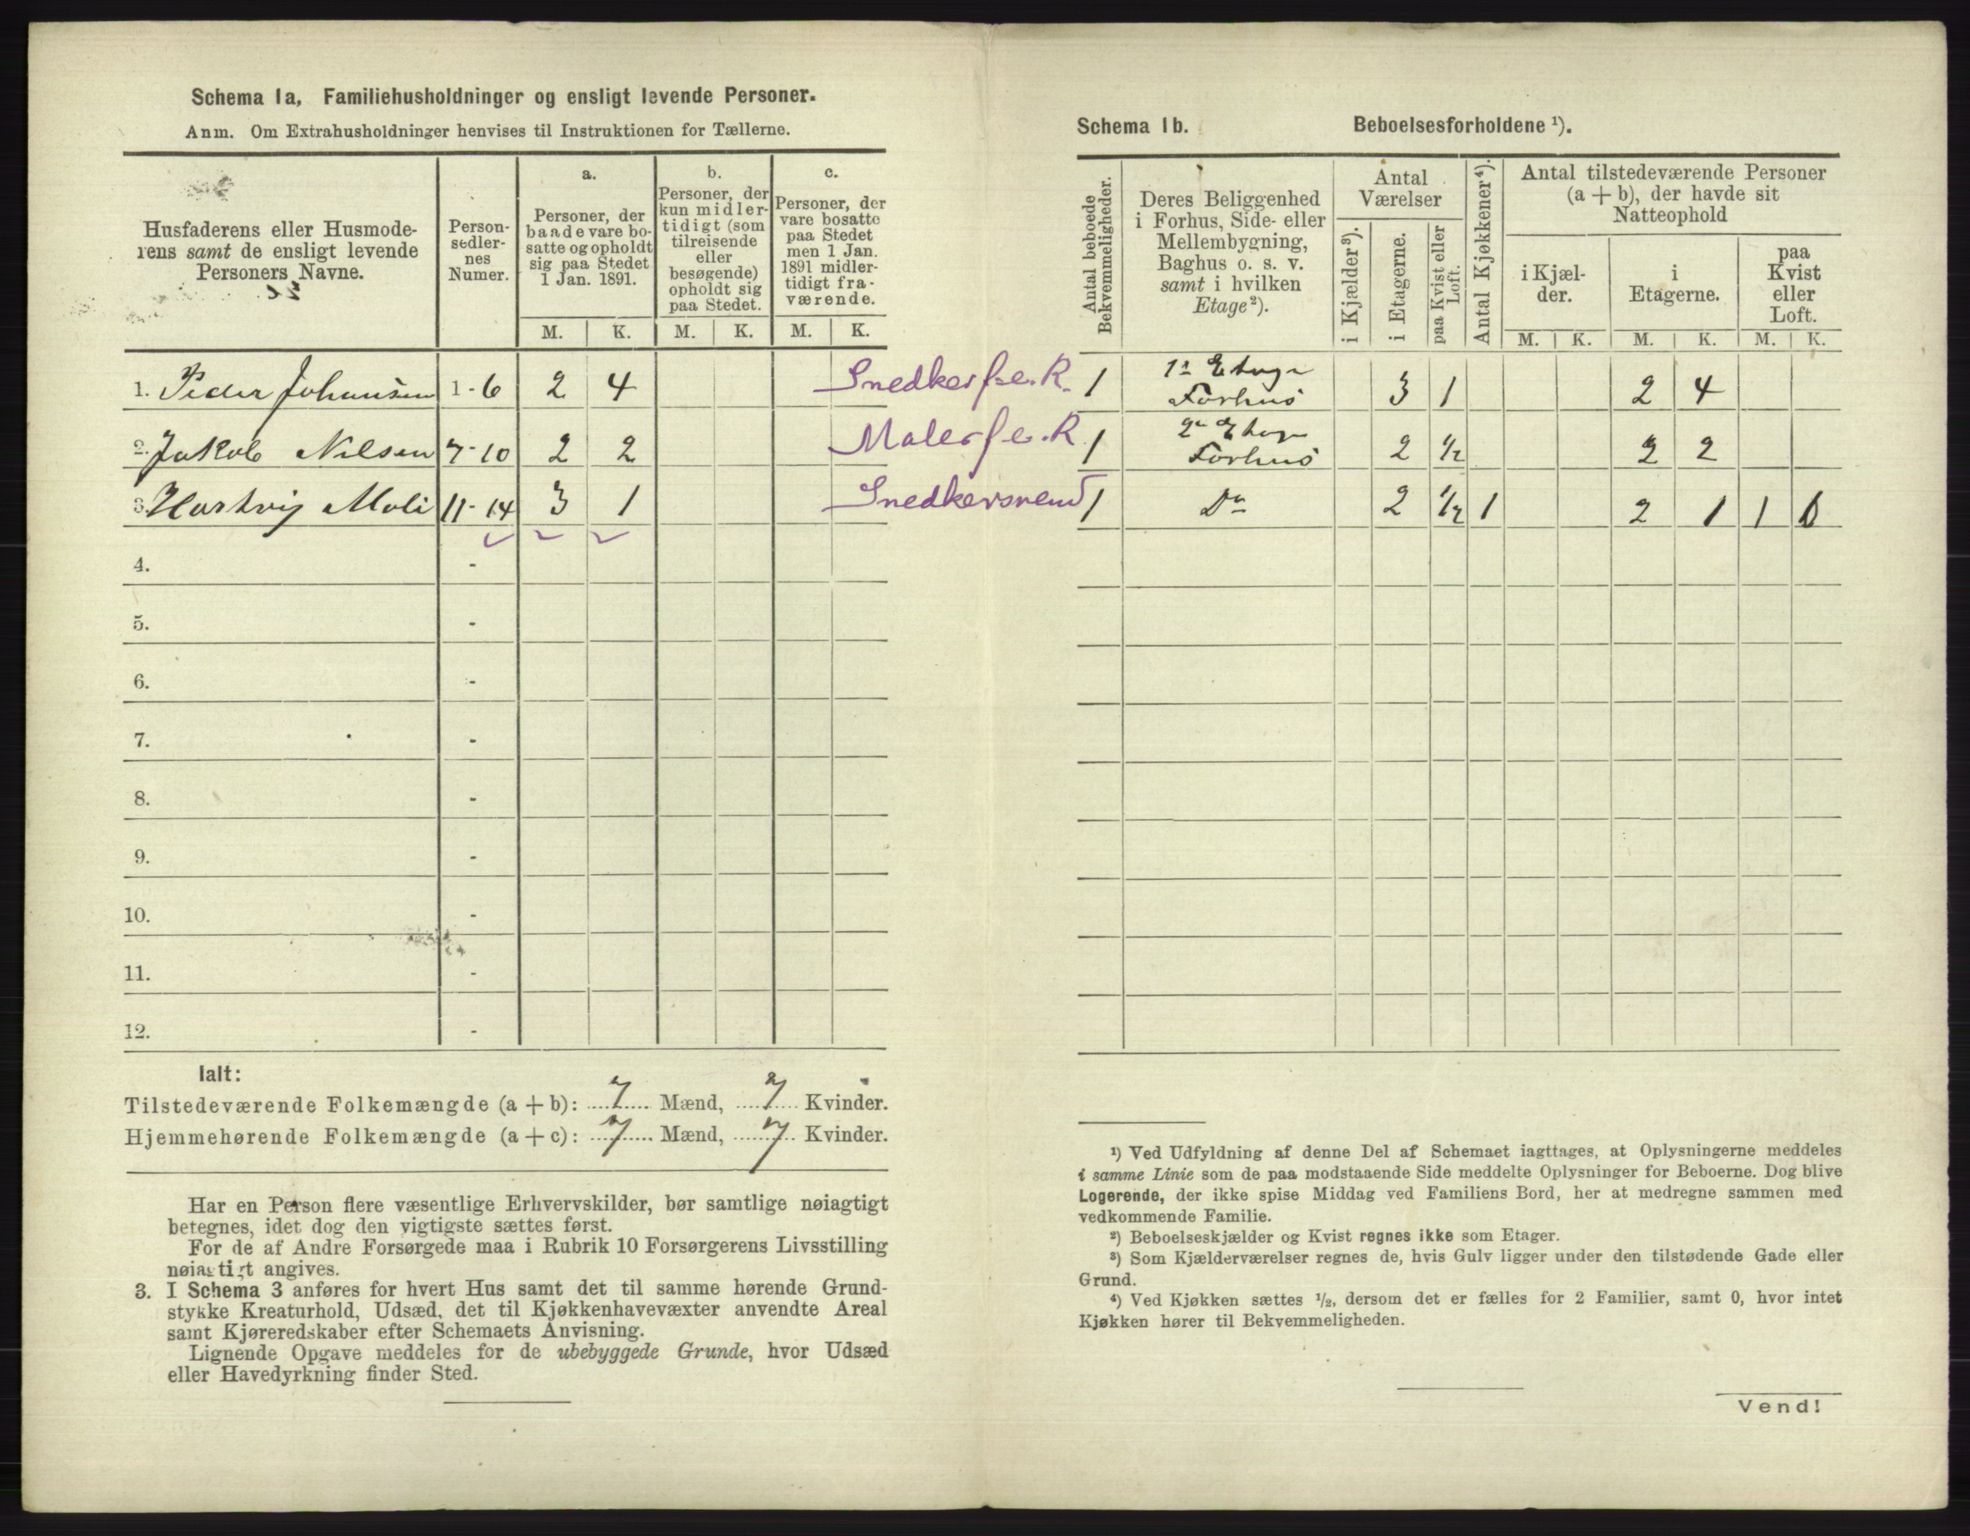 Schema 1a, Familiehusholdninger og ensligt levende Personer.
Anm. Om Extrahusholdninger henvises til Instruktionen for Tællerne.
Husfaderens eller Husmode-
rens samt de ensligt levende
Personers Navne.
Person-
sedler-
nes
Numer.
a.
Personer, der
baade vare bo-
satte og opholdt
sig paa Stedet
1 Jan. 1891.
b.
Personer, der
kun midler-
tidigt (som
tilreisende
eller
besøgende)
opholdt sig
paa Stedet.
c.
Personer, der
vare bosatte
paa Stedet
men 1 Jan.
1891 midler-
tidigt fra-
værende.
M. K. M. K. M. K.
1. Peder Johansen 1-6 2 4 Snedkerfa.R.
2. Jakob Nilsen 7-10 2 2 Malerfa.R
3. Hartvig Moli 11-14 3 1 Snedkersvend
4. -
5. -
6. -
7. -
8. -
9. -
10. -
11. -
12. -
Ialt:
Tilstedeværende Folkemængde (a + b): 7 Mænd, 7 Kvinder.
Hjemmehørende Folkemængde (a + c): 7 Mænd, 7 Kvinder.
Har en Person flere væsentlige Erhvervskilder, bør samtlige nøiagtigt
betegnes, idet dog den vigtigste sættes først.
For de af Andre Forsørgede maa i Rubrik 10 Forsørgerens Livsstilling
nøiagtigt angives.
3. I Schema 3 anføres for hvert Hus samt det til samme hørende Grund-
stykke Kreaturhold, Udsæd, det til Kjøkkenhavevæxter anvendte Areal
samt Kjøreredskaber efter Schemaets Anvisning.
Lignende Opgave meddeles for de ubebyggede Grunde, hvor Udsæd
eller Havedyrkning finder Sted.
Schema 1b. Beboelsesforholdene ¹).
Antal beboede
Bekvemmeligheder.
Deres Beliggenhed
i Forhus, Side- eller
Mellembygning,
Baghus o. s. v.
samt i hvilken
Etage²).
Antal
Værelser
i Kjælder³).
i Etagerne.
paa Kvist eller
Loft.
Antal Kjøkkener⁴).
Antal tilstedeværende Personer
(a + b), der havde sit
Natteophold
i Kjæl-
der.
i
Etagerne.
paa
Kvist
eller
Loft.
M. K. M. K. M. K.
1 1ª Etage
Forhus 3 1 2 4
1 2ⁿ Etage
Forhus 2 1/2 2 2
1 Dº 2 1/2 1 2 1 1
¹) Ved Udfyldning af denne Del af Schemaet iagttages, at Oplysningerne meddeles
i samme Linie som de paa modstaaende Side meddelte Oplysninger for Beboerne. Dog blive
Logerende, der ikke spise Middag ved Familiens Bord, her at medregne sammen med
vedkommende Familie.
²) Beboelseskjælder og Kvist regnes ikke som Etager.
³) Som Kjælderværelser regnes de, hvis Gulv ligger under den tilstødende Gade eller
Grund.
⁴) Ved Kjøkken sættes ½, dersom det er fælles for 2 Familier, samt 0, hvor intet
Kjøkken hører til Bekvemmeligheden.
Vend!